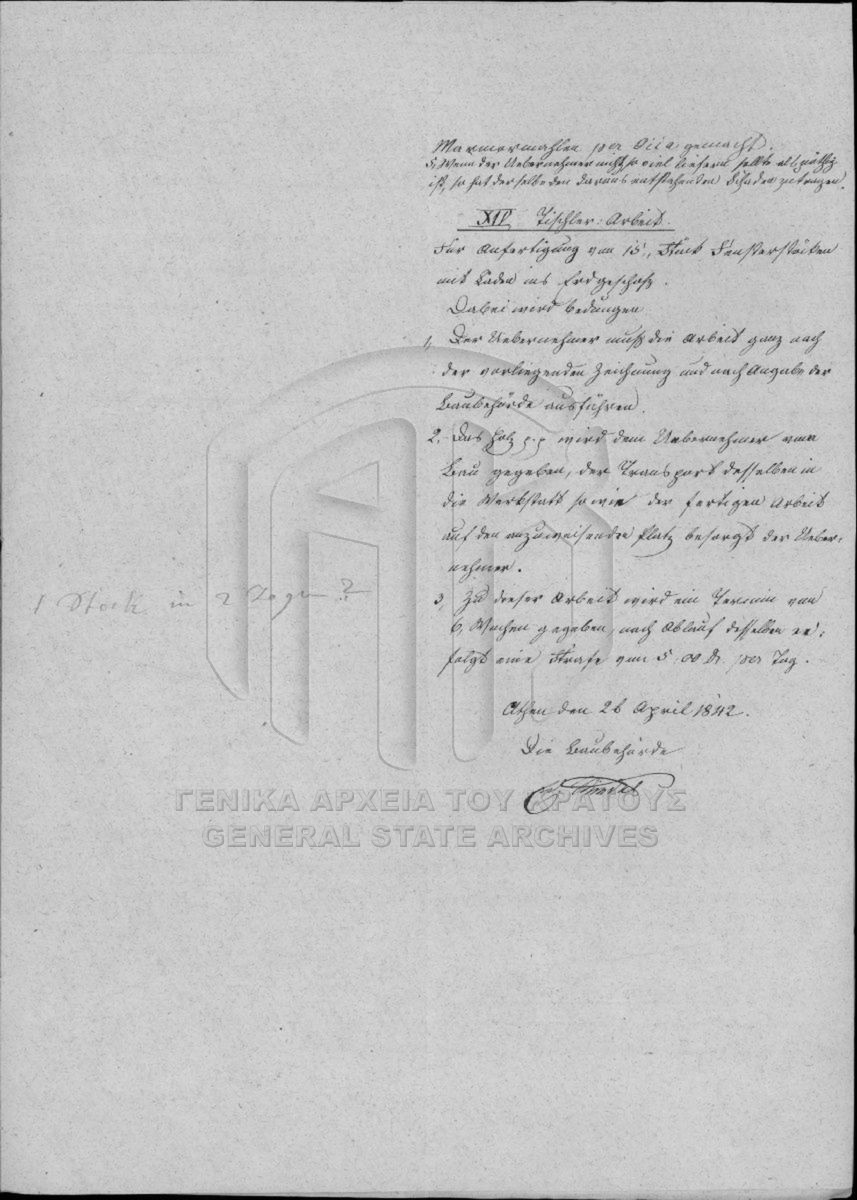 Marmormahlen per Occa gemacht.
5, Wenn der Uebernehmer nicht so viel liefern sollte als nöthig
ist, so hat derselbe den daraus entstehenden Schaden zu tragen.
Tischler-Arbeit.
Für Anfertigung von 15, Stück Fensterstöcken
mit Läden ins Erdgeschoß.
Dabei wird bedungen
1, Der Uebernehmer muß die Arbeit ganz nach
der vorliegenden Zeichnung und nach Angabe der
Baubehörde ausführen.
2, Das Holz p.p wird dem Uebernehmer vom
Bau gegeben, der Transport desselben in
die Werkstatt sowie der fertigen Arbeit
auf den anzuweisenden Platz besorgt der Ueber-
nehmer.
1 Stock in 2 Tagen?
3, Zu dieser Arbeit wird ein Termin von
6, Wochen gegeben, nach Ablauf desselben er-
folgt eine Strafe von 5,00 Dr. per Tag.
Athen den 26 April 1842.
Die Baubehörde
ΓΕΝΙΚΑ ΑΡΧΕΙΑ ΤΟΥ ΚΡΑΤΟΥΣ
GENERAL STATE ARCHIVES